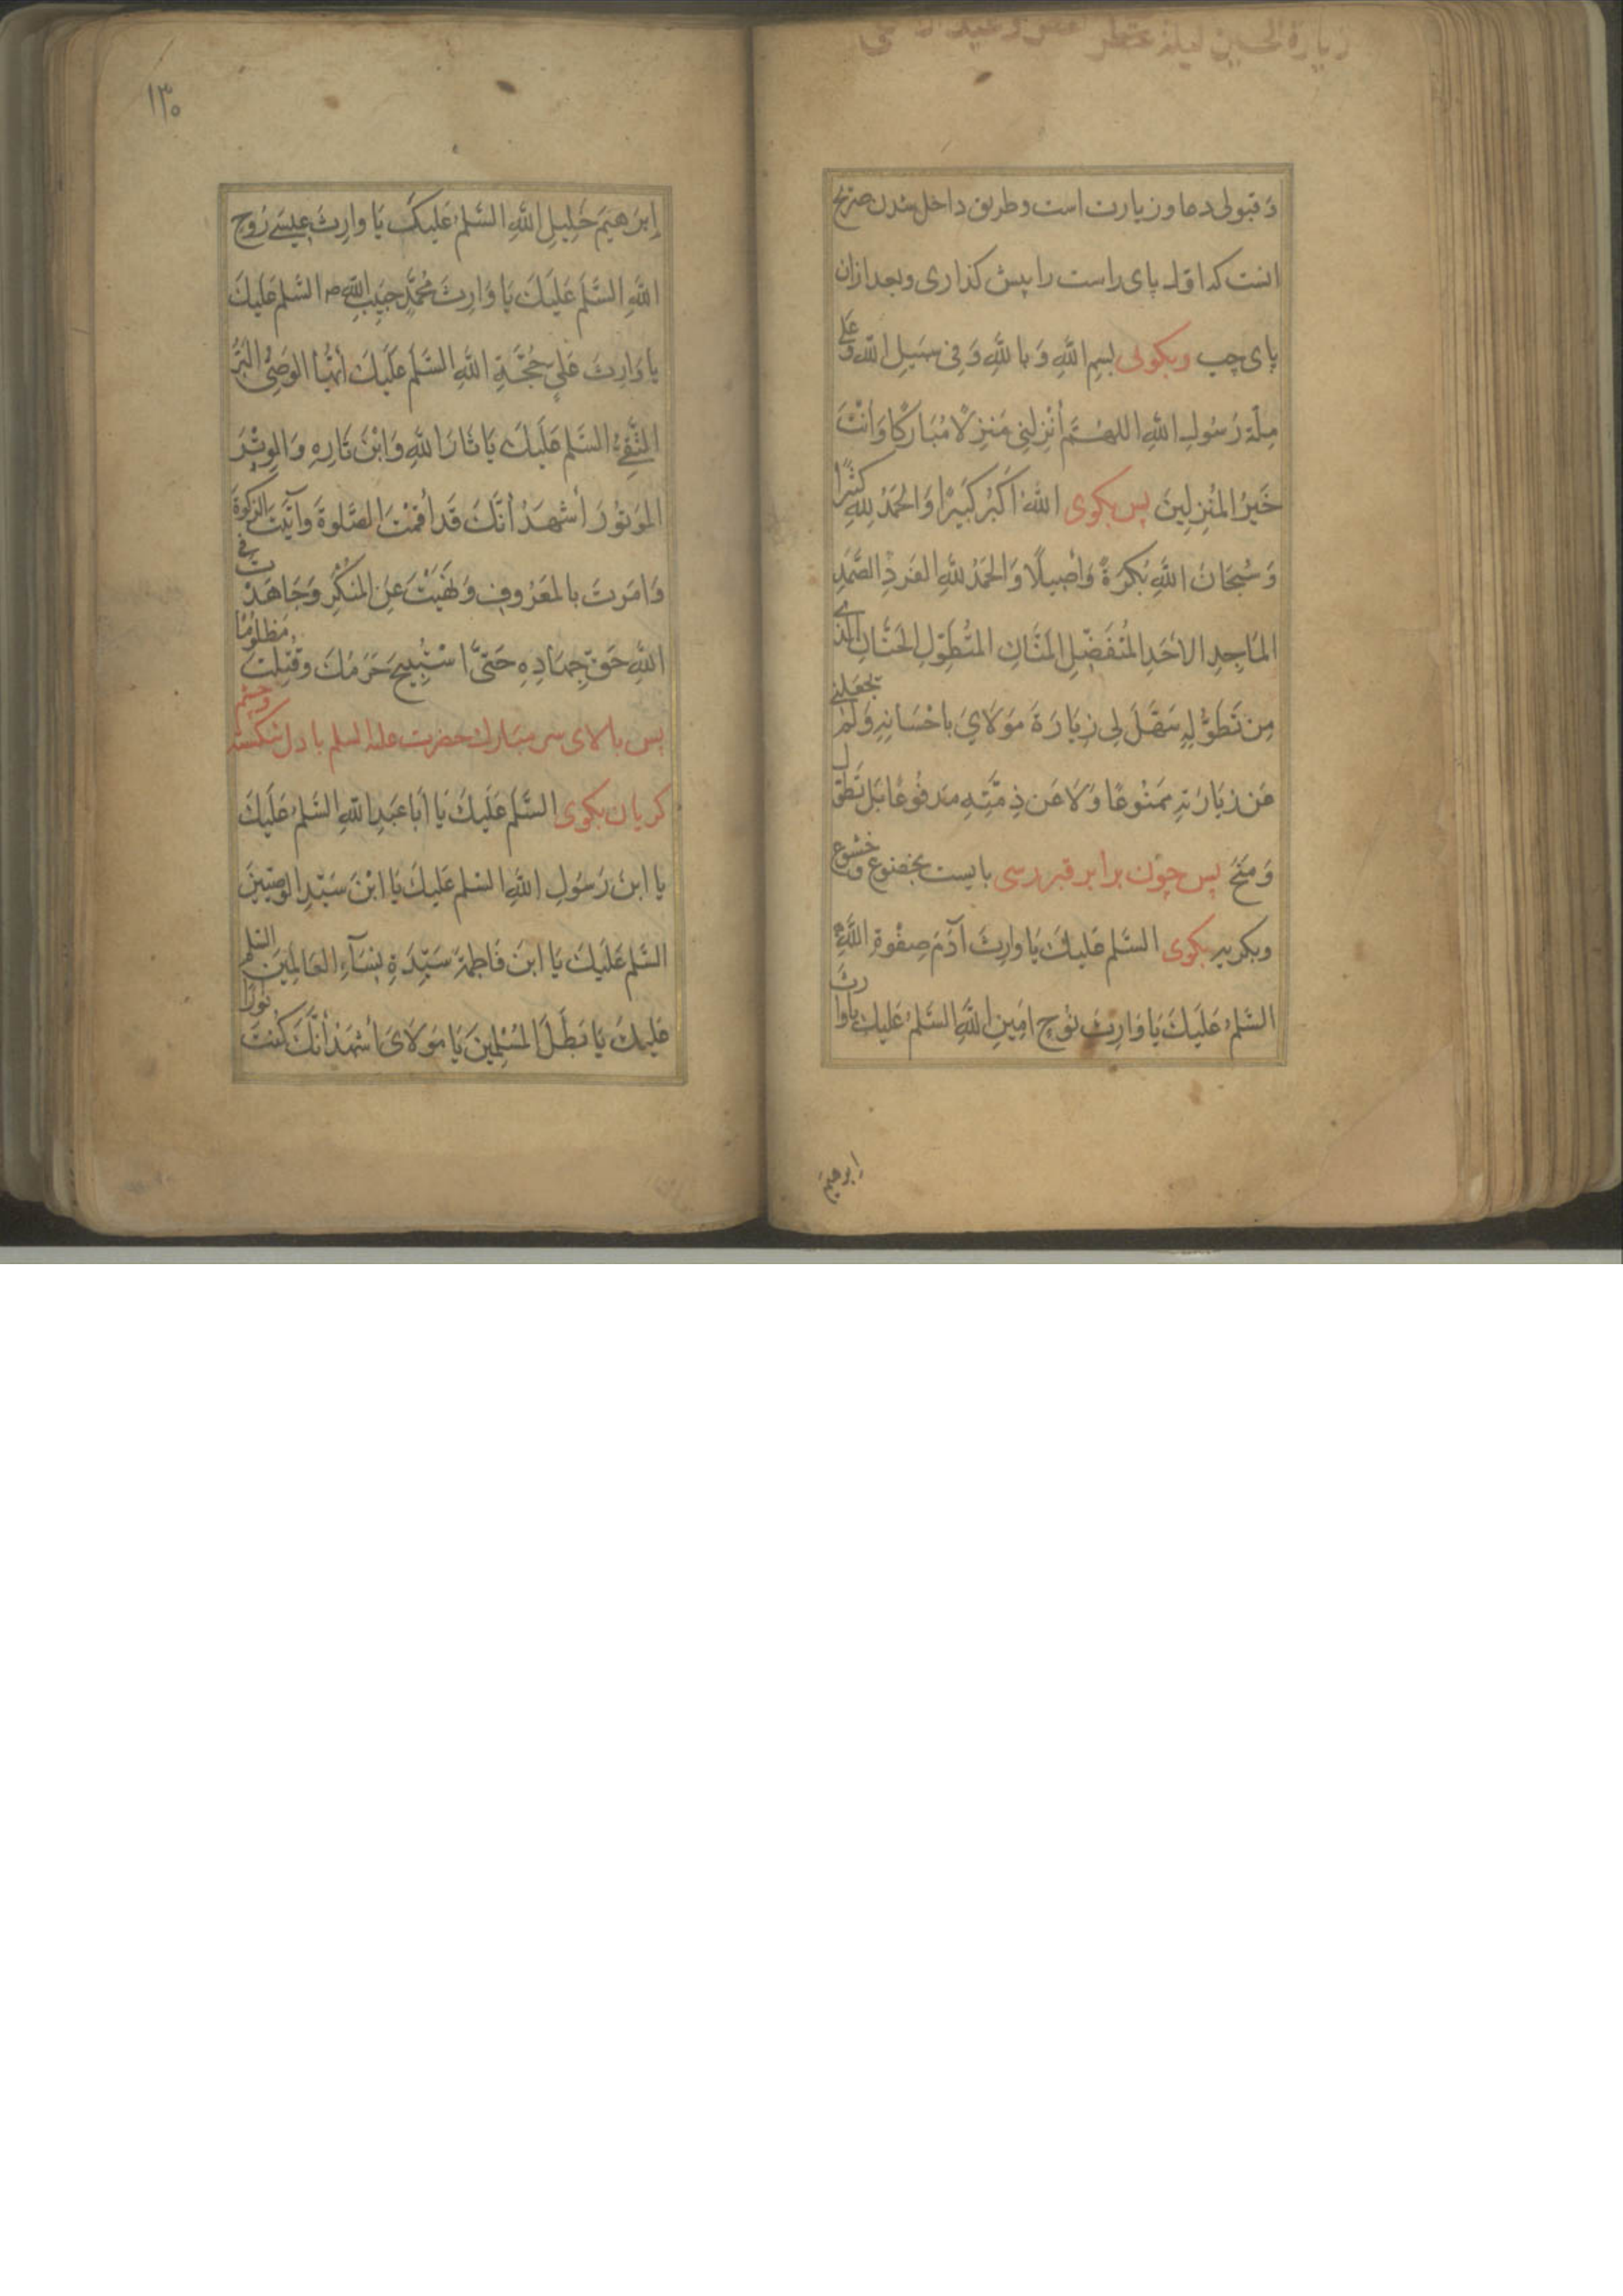 زيارة الحسين ليلة
و قبولی دعا و زیارت است و طریق داخل شدن ضریح
انست که اول پای راست را پیش کذاری و بعد ازان
پای چپ وبکوئی بسم اللهِ وَ باللهِ وَ فِی سَبیلِ اللهِ وَ عَلی
مِلّةِ رَسُولِ اللهِ اللهُمَّ أَنْزِلنِی مَنزِلًا مُبَارَكًا وَأَنْتَ
خَيرُ المُنزِلِينَ پس بکوی اللهُ اَكْبَرُ كَبِيْرًا وَالحَمدُ لِلهِ كَثِيْرًا
وَ سُبحَانَ اللهِ بُكرَةً وَأَصِيلًا وَالحَمدُ لِلهِ الفَردِ الصَّمَدِ
المَاجِدِ الاَحَدِ المُتَفَضِّلِ المَنَّانِ المُتَطَوِّلِ الحَنَّانِ الَّذی
مِن تَطَوُّلِهِ سَهَّلَ لِی زِیَارَةَ مَولَایَ بِاحْسَانِهِ وَلَمْ تَجعَلنِی
عَن زِیَارَتِهِ مَمنْوعًا وَلَا عَن ذِمَّتِهِ مَدفُوعًا بَل تَطَوَّلَ
وَ مَنَحَ پس چون برابر قبر رسی بایست بخضوع و خشوع
وبکریه بکوی السَّلمُ عَلَیكَ یَا وارِثَ آدَمَ صِفْوةِ اللهِ
السَّلمُ عَلَیكَ یَا وَارِثَ نُوحٍ امَینِ اللهِ السَّلمُ عَلَیكَ یاوارِثَ
ابرهیم
۱۳۰
إبرَهیمَ خَلِیلِ اللهِ السَّلمُ عَلَیكَ یَا وارِثَ عِیسَی رُوحِ
اللهِ السَّلَمُ عَلَیكَ یَا وَارِثَ مُحَمَّدٍ حَبِیبِ اللهِ ص السَّلمُ عَلَیكَ
یا وَارِثَ عَلیٍ حُجَّةِ اللهِ السَّلَمُ عَلَیكَ أَیُّهَا الوَصِیُّ البَرُّ
التَّقِیُ السَّلمُ عَلَیكَ یَا ثَارَ اللهِ وَابْنَ ثَارِهِ وَالوِتْرَ
المَوتُورَ أَشهَدُ أَنَّكَ قَد أَقَمْتَ الصَّلوةَ وآتَیتَ الزَّکوةَ
وَ امَرتَ بالمَعرُوفِ وَ نَهَیْتَ عَنِ المُنكَرِ وَجَاهَدْتَ فِی
اللهِ حَقَّ جِهَادِهِ حَتَّى اسْتُبِیحَ حَرَمُكَ وقُتِلتَ مَظلُومًا
پس بالای سر مبارك حضرت علیه السلم با دل شکسته وچشم
کریان بکوی السَّلَمُ عَلَیكَ یَا اَبا عَبدِ اللهِ السَّلمُ عَلَیكَ
یا ابنَ رَسُولِ اللهِ السَّلمُ عَلَیكَ یَا ابْنَ سَیّدِ الوصِیِّینَ
السَّلمُ عَلَیكَ یَا ابنَ فَاطِمَةَ سَیِّدَةِ نِسَآءِ العَالَمِینَ السَّلمُ
عَلَیكَ یَا بَطَلَ المُسْلِمِینَ یَا مَولَایَ أَشهَدُ أَنَّكَ كُنتَ نُورًا